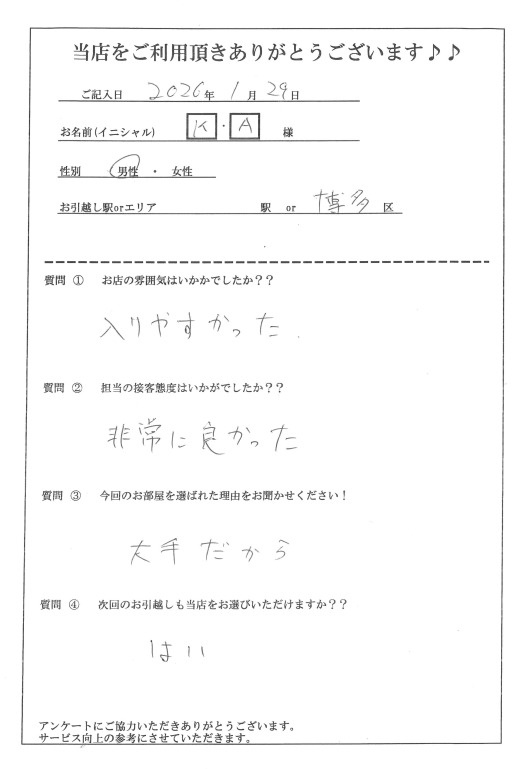 当店をご利用頂きありがとうございます♪♪
ご記入日 2026年 1月 29日
お名前(イニシャル) K・A 様
性別 男性 ・ 女性
お引越し駅orエリア 駅 or 博多 区
質問 ① お店の雰囲気はいかかでしたか??
入りやすかった.
質問 ② 担当の接客態度はいかがでしたか??
非常に良かった
質問 ③ 今回のお部屋を選ばれた理由をお聞かせください!
大手だから
質問 ④ 次回のお引越しも当店をお選びいただけますか??
はい
アンケートにご協力いただきありがとうございます。
サービス向上の参考にさせていただきます。